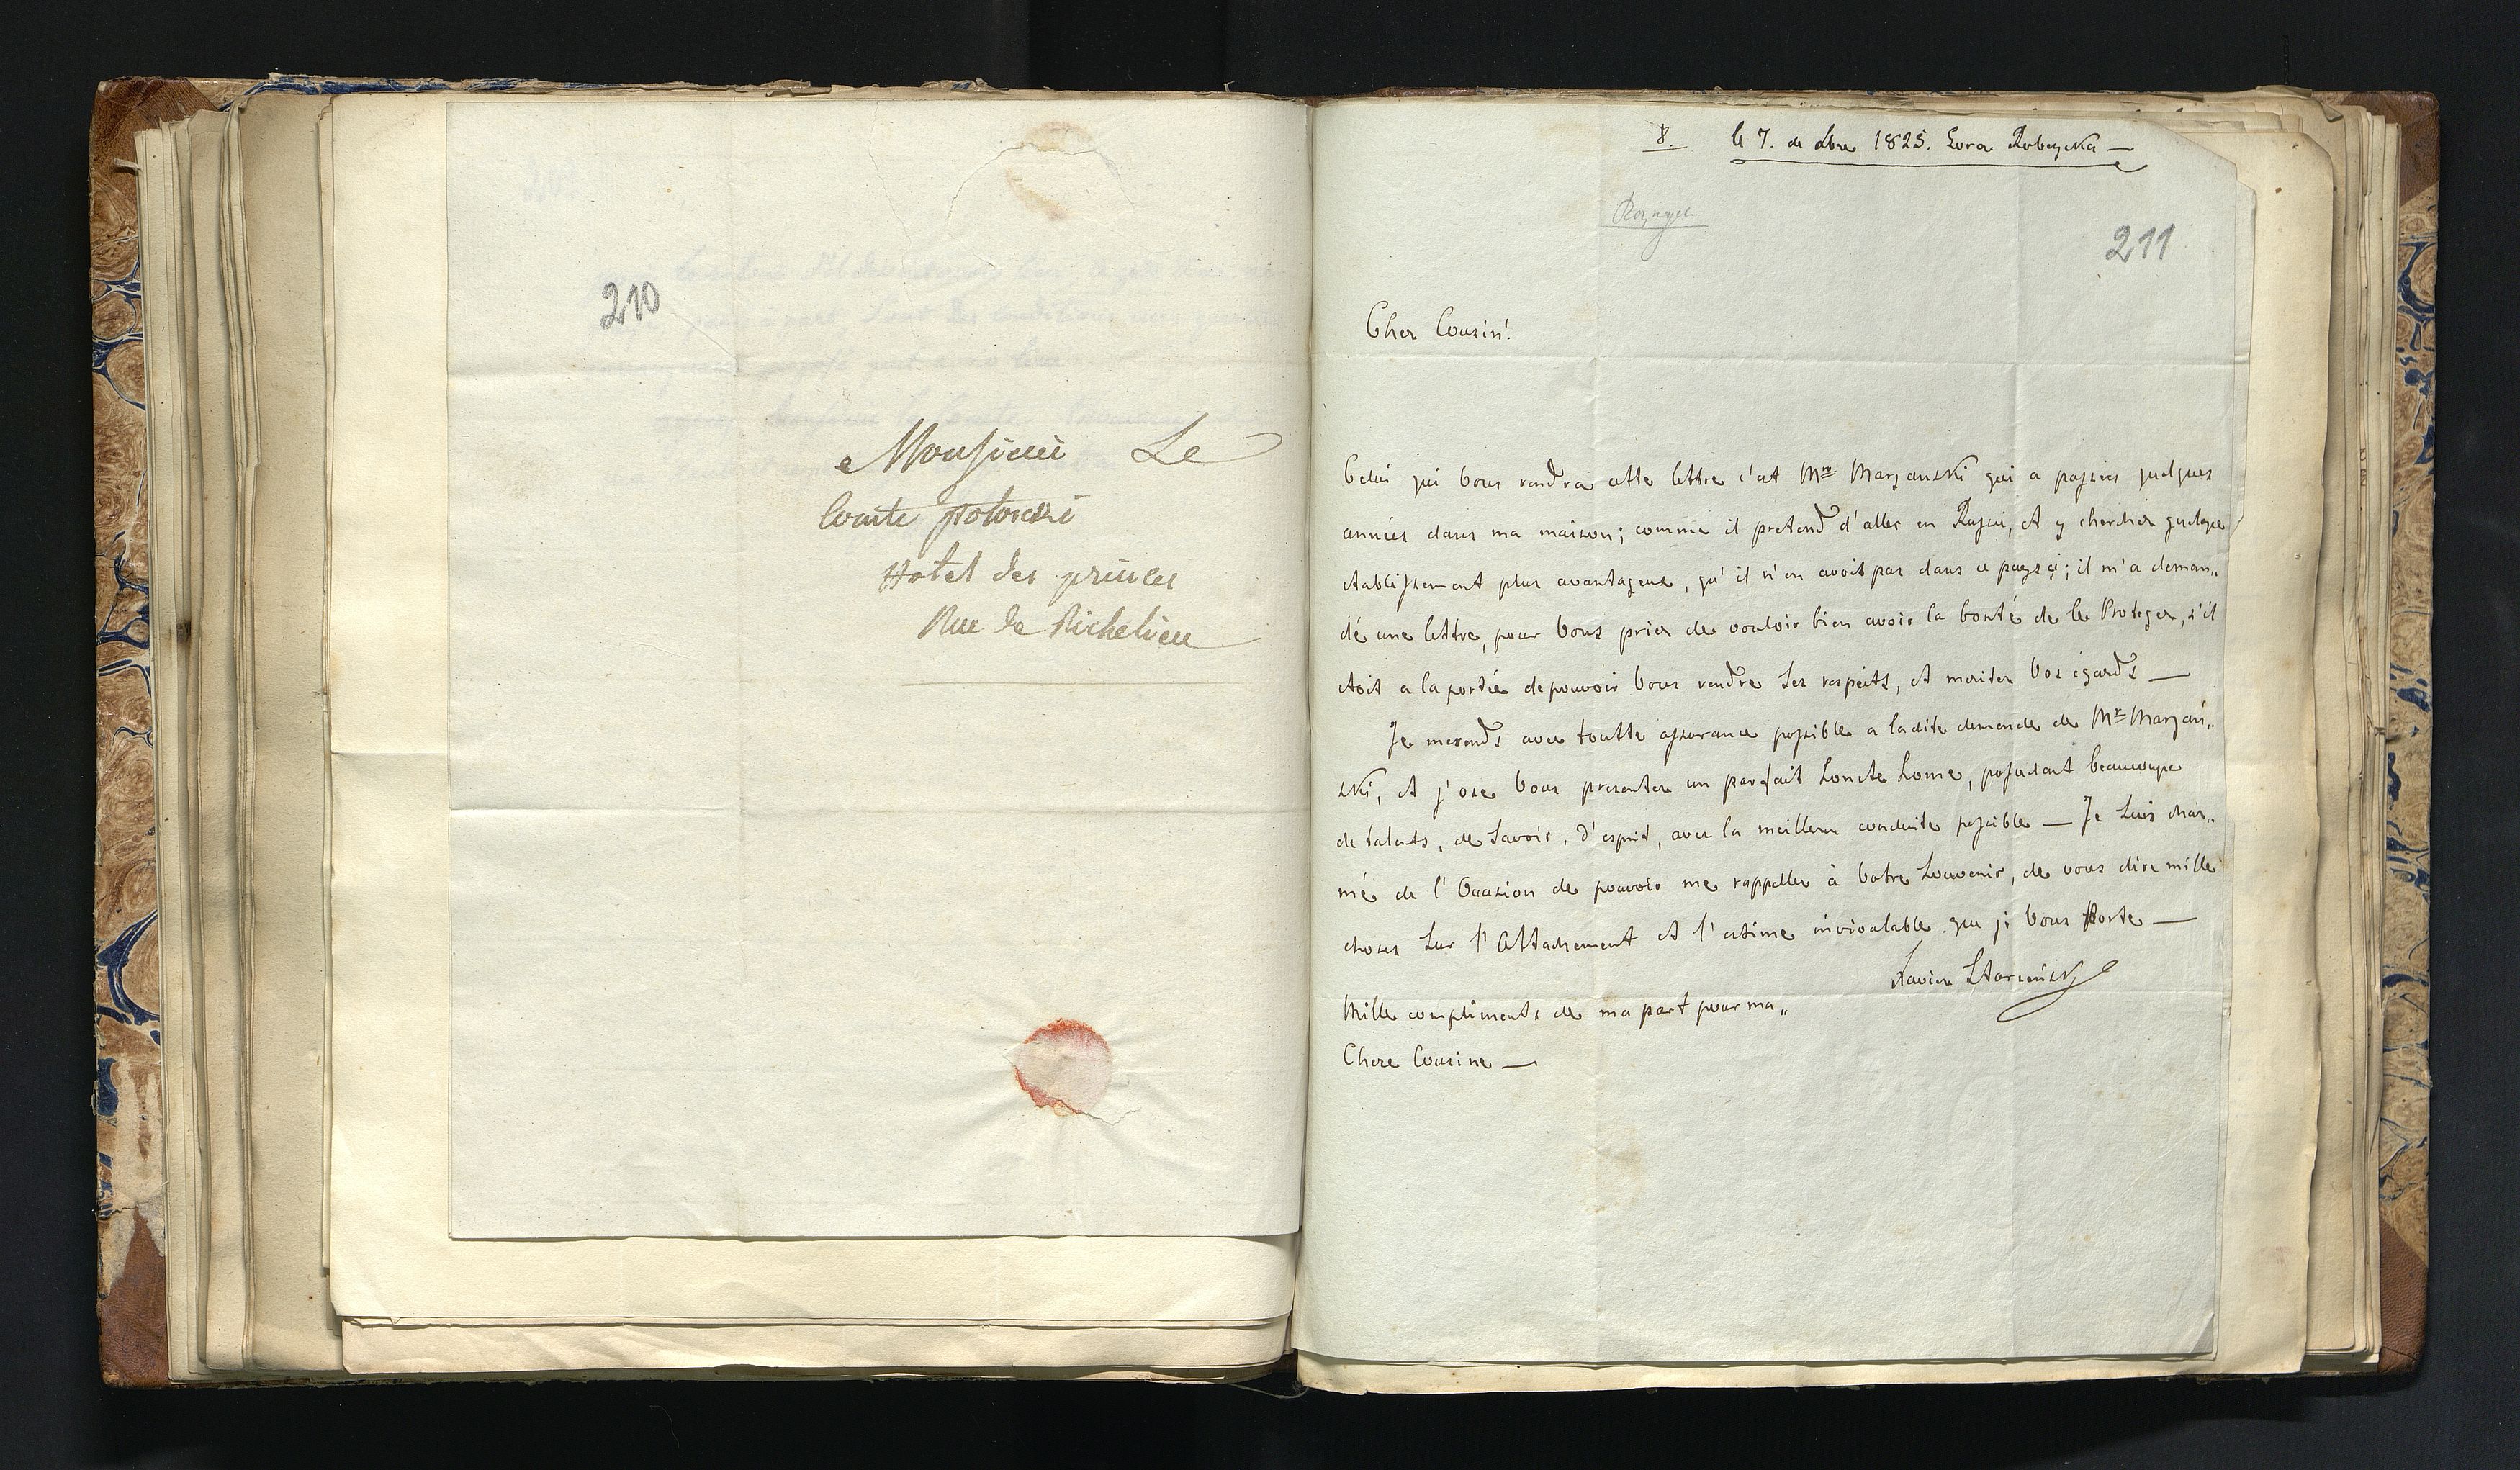 210
Monsieur Le
Comte potocki
Hotel des princes
Rue de Richelieu
8. le 7. de Xbre 1825. Gora Robczycka —
211
Cher Cousin!
Celui qui Vous rendra cette lettre c'est Mr Marzanski qui a passés quelques
années dans ma maison; comme il pretend d'aller en Russie, et y chercher quelque
etablissement plus avantageux, qu'il n'en avoit pas dans ce pays ci; il m'a deman„
dé une lettre, pour Vous prier de vouloir bien avoir la bonté de le Proteger, s'il
etoit a la portée de pouvoir Vous rendre Ses respects, et meriter Vos egards —
Je me rends avec toutte assurance possible a la dite demande de Mr Marzań„
ski, et j'ose Vous presenter un parfait honete home, possedant beaucoupe
de talents, de Savoir, d'esprit, avec la meilleure conduite possible — Je Suis char„
mé de l'Occasion de pouvoir me rappeller à Votre Souvenir, de vous dire mille
choses Sur l'Attachement et l'estime inviolable que je Vous Porte —
Xavier Starzeński
Mille compliments de ma part pour ma„
Chere Cousine —